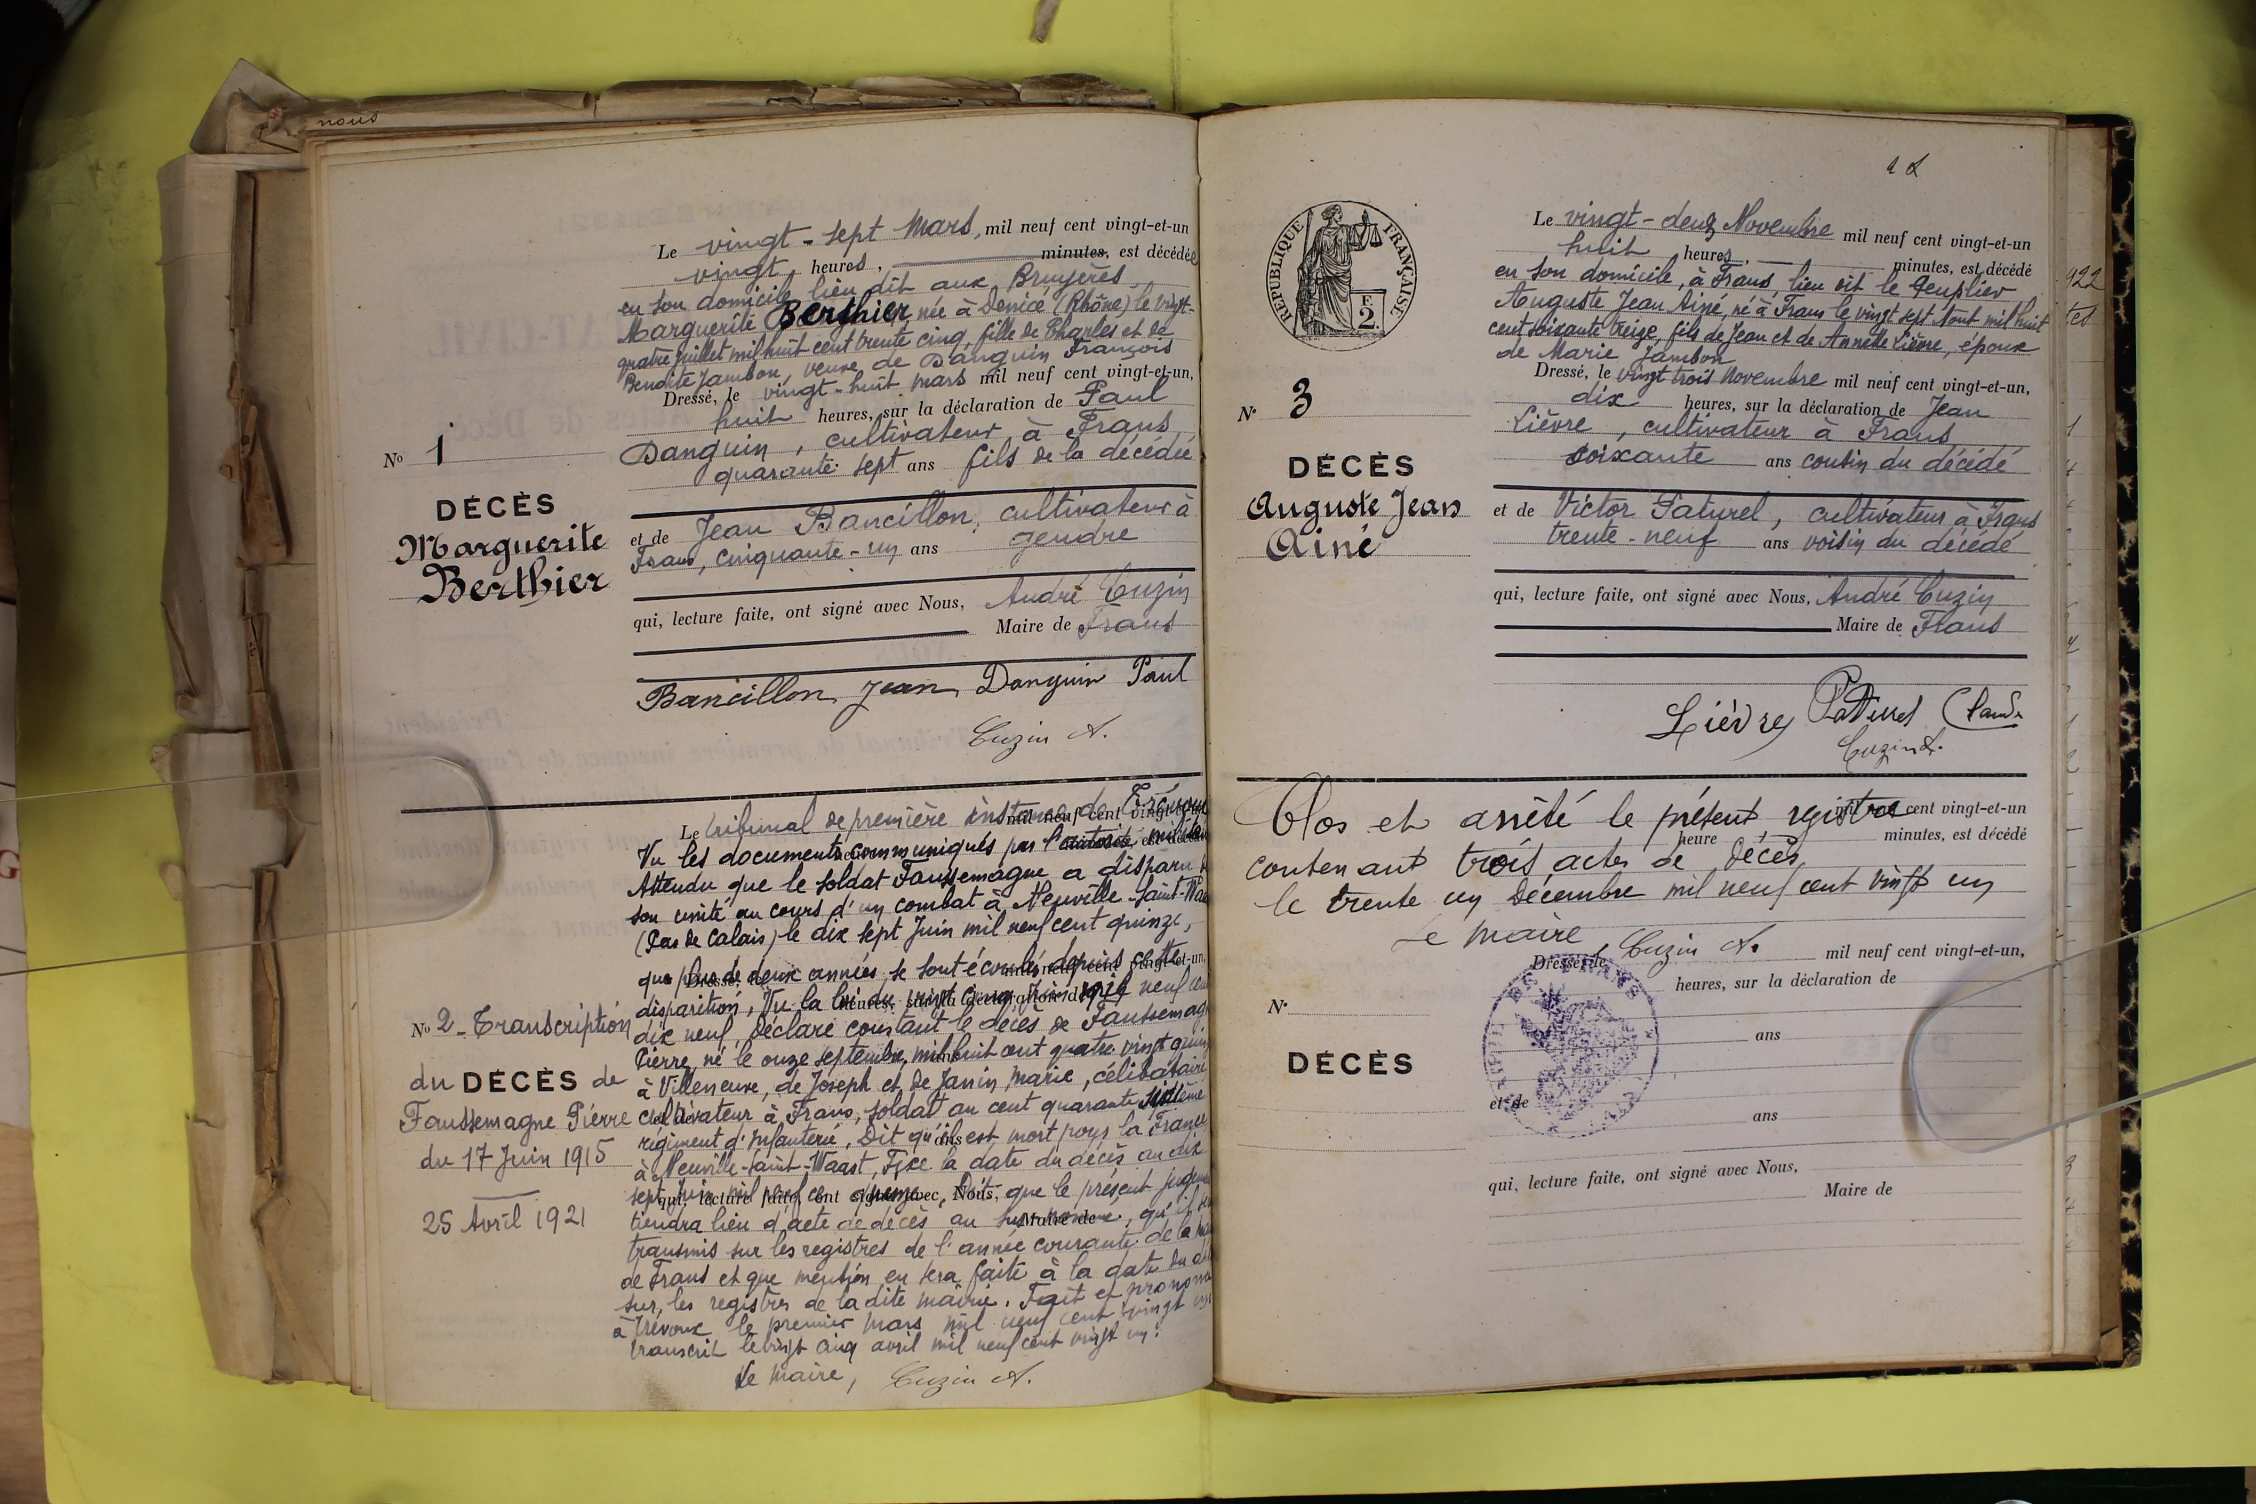 nous
Le vingt-sept Mars, mil neuf cent vingt-et-un
vingt heures, minutes, est décédée
en son domicile lieu dit aux Bruyères
Marguerite Berthier née à Denicé (Rhône) le vingt-
quatre Juillet mil huit cent trente cinq, fille de Charles et de
Benoite Jambon, veuve de Danguin François
Dressé, le vingt-huit mars mil neuf cent vingt-et-un,
huit heures, sur la déclaration de Paul
Danguin, cultivateur à Frans,
quarante sept ans fils de la décédée
No 1
DÉCÈS
Marguerite
Berthier
et de Jean Bancillon, cultivateur à
Frans, cinquante-un ans gendre
qui, lecture faite, ont signé avec Nous, André Cuzin
Maire de Frans
Bancillon Jean Danguin Paul
Cuzin A.
Le tribunal de première instance de Trévoux
mil neuf cent vingt-et-un
Vu les documents communiqués par l'autorité
Attendu que le soldat Faussemagne a disparu de
son unité au cours d'un combat à Neuville-Saint-Waast
(Pas de Calais) le dix sept Juin mil neuf cent quinze,
que plus de deux années se sont écoulées depuis cette
disparition, Vu la loi du vingt cinq Juin neuf cent
dix neuf, Déclare constant le décès de Faussemagne
Pierre, né le onze septembre mil huit cent quatre vingt quinze
à Villeneuve, de Joseph et de Janin Marie, célibataire
cultivateur à Frans, soldat au cent quarante sixième
régiment d'Infanterie, Dit qu'il est mort pour la France
à Neuville-Saint-Waast, Fixe la date du décès au dix
sept Juin mil neuf ce quinze, Dit que le présent jugement
tiendra lieu d'acte de décès au, qu'il sera
transmis sur les registres de l'année courante de la mairie
de Frans et que mention en sera faite à la date du décès
sur les registres de la dite mairie. Fait et prononcé
à Trévoux le premier Mars mil neuf cent vingt un
transcrit le vingt cinq avril mil neuf cent vingt un.
Le Maire, Cuzin A.
No 2 - Transcription
du DÉCÈS de
Faussemagne Pierre
du 17 Juin 1915
25 Avril 1921
RÉPUBLIQUE FRANÇAISE
E
2.
Le vingt-deux Novembre mil neuf cent vingt-et-un
huit heures, minutes, est décédé
en son domicile, à Frans, lieu dit le Peuplier
Auguste Jean Ainé, né à Frans le vingt sept Aout mil huit
cent soixante treize, fils de Jean et de Annette Lièvre, époux
de Marie Jambon
Dressé, le vingt trois Novembre mil neuf cent vingt-et-un,
dix heures, sur la déclaration de Jean
Lièvre, cultivateur à Frans
soixante ans cousin du décédé
No 3
DÉCÈS
Auguste Jean
Ainé
et de Victor Paturel, cultivateur à Frans
trente-neuf ans voisin du décédé
qui, lecture faite, ont signé avec Nous, André Cuzin
Maire de Frans
Lièvre Paturel Claude
Cuzin A.
Clos et arrêté le présent registre cent vingt-et-un
heure minutes, est décédé
contenant trois actes de Décès
le trente un Décembre mil neuf cent vingt un
Le Maire
Cuzin A.
Dressé, le mil neuf cent vingt-et-un,
heures, sur la déclaration de
No
ans
DÉCÈS
et de
ans
qui, lecture faite, ont signé avec Nous,
Maire de
922